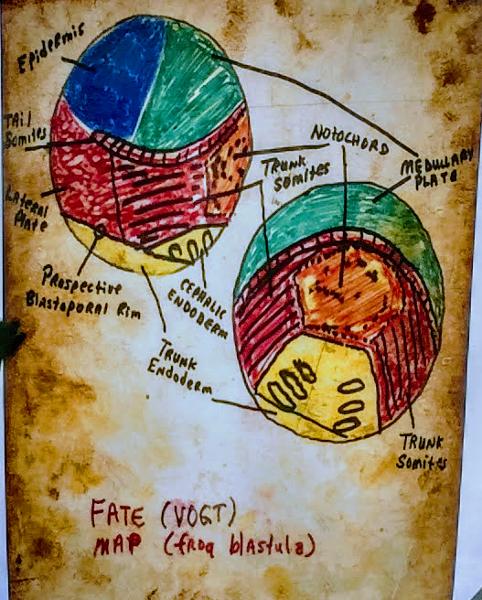 Epidermis
Tail
Somites
Lateral
Plate
Prospective
Blastoporal Rim
Cephalic
Endoderm
Trunk
Endoderm
Notochord
Trunk
Somites
Medullary
Plate
Trunk
Somites
FATE (VOGT)
MAP (frog blastula)